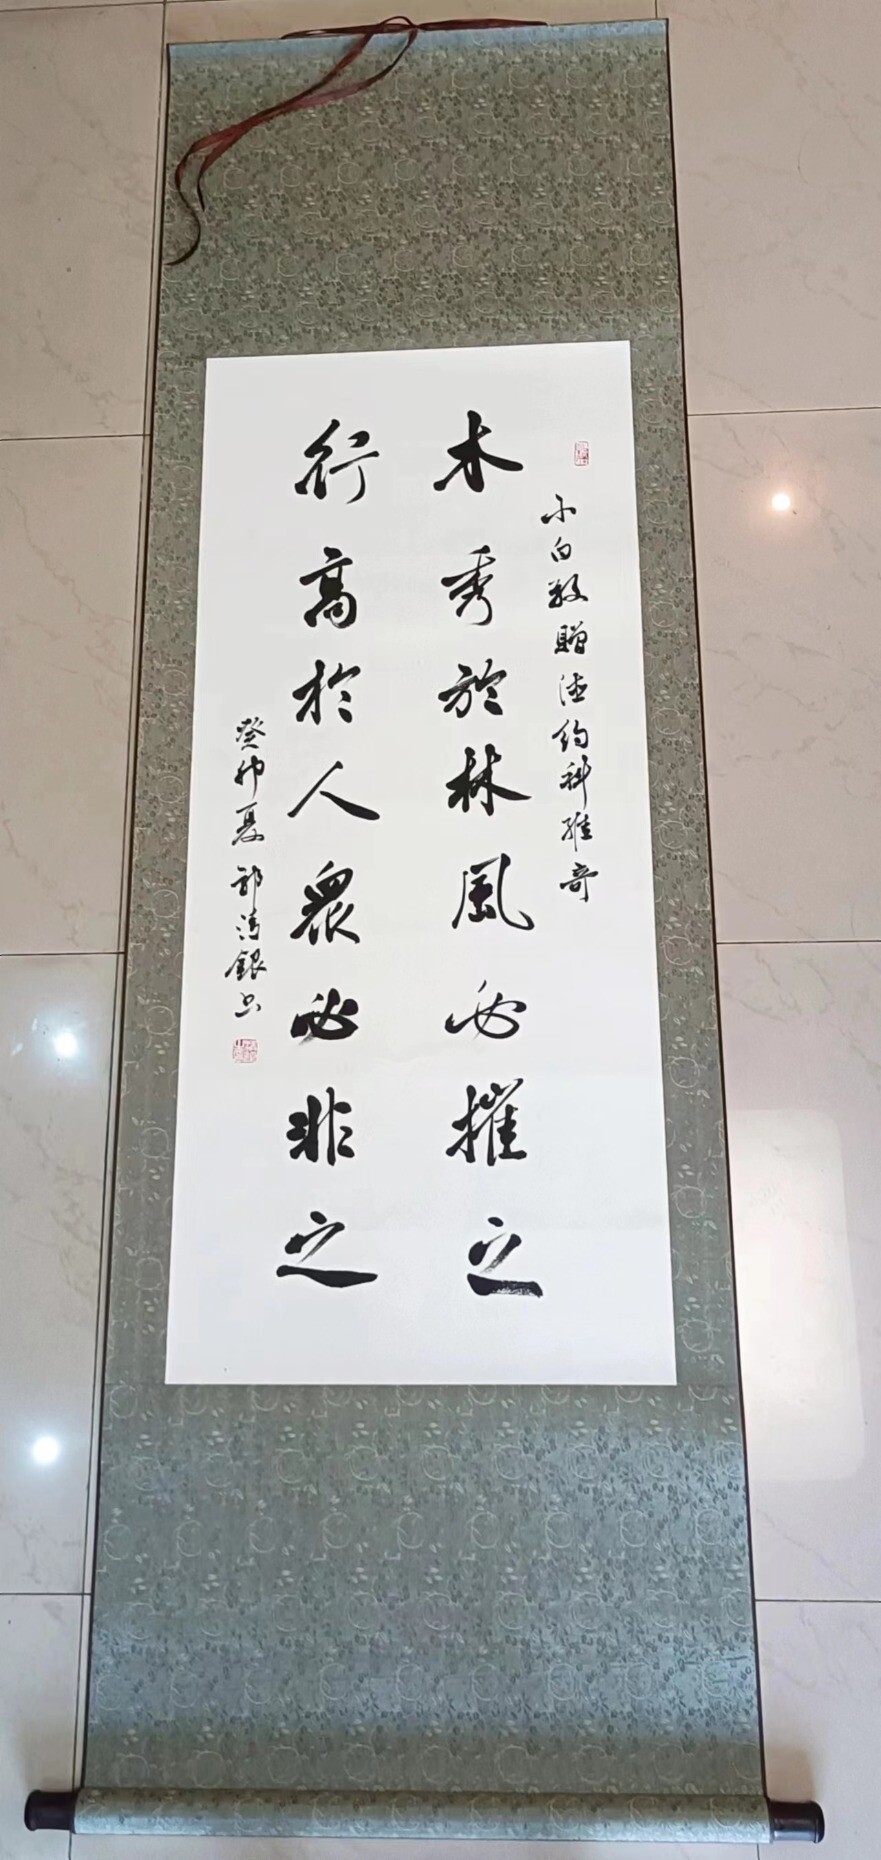 小白敬贈德约科维奇
木秀於林風必摧之
行高於人眾必非之
癸卯夏 郭清銀书